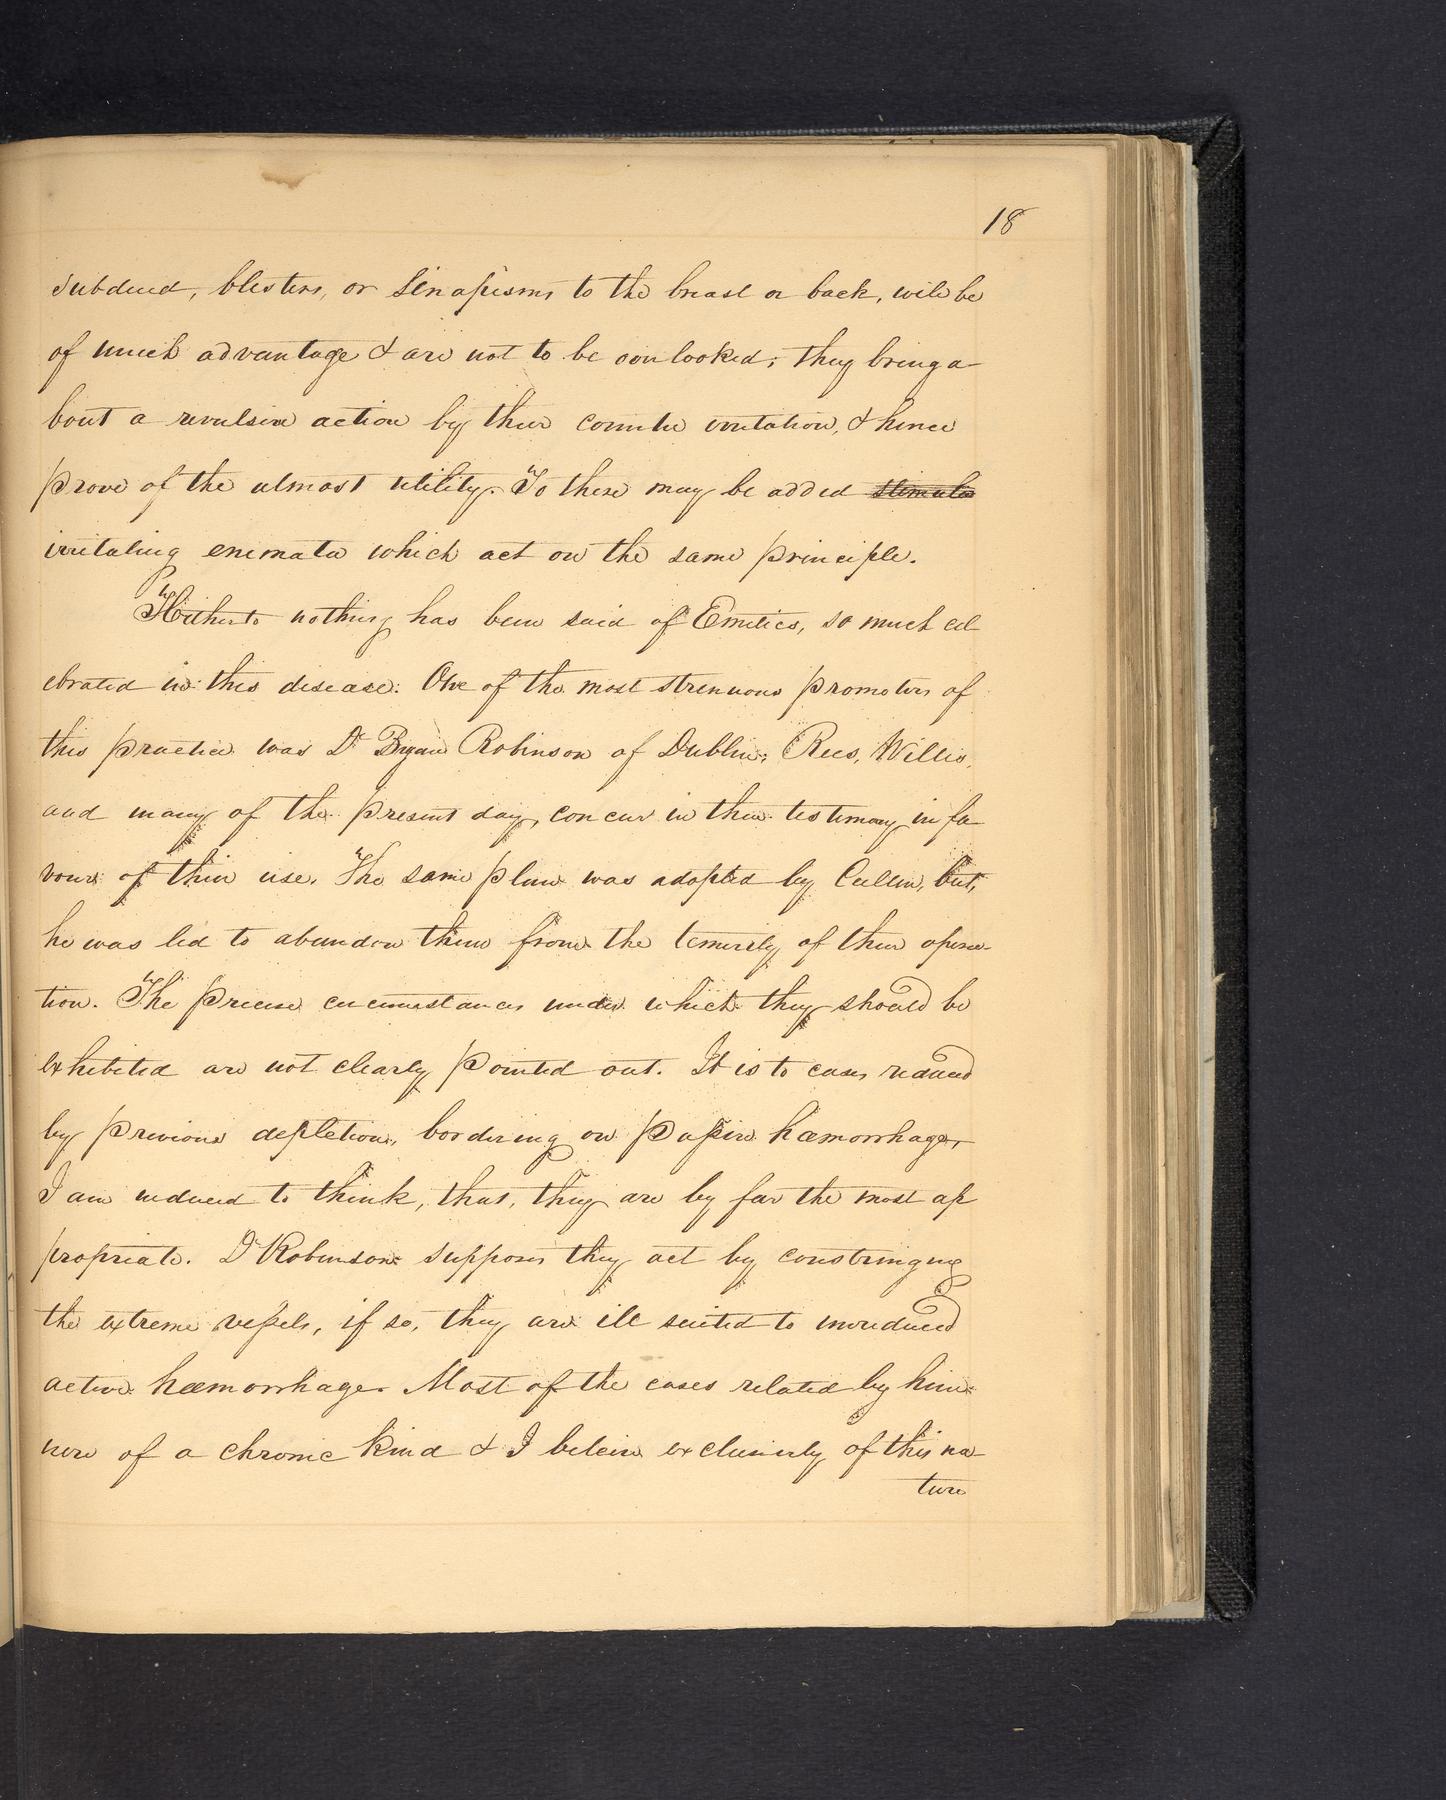 18
subdued, blisters, or Sinapisms to the breast or back, will be
of much advantage & are not to be overlooked; they bring a
bout a revulsive action by their counter irritation, & hence
prove of the utmost utility. To these may be added stimula
irritating enemata which act on the same principle.
Hitherto nothing has been said of Emetics, so much cel
ebrated in this disease. One of the most strenuous promoters of
this practice was Dr Bryan Robinson of Dublin; Rees, Willis,
and many of the present day, concur in their testimony in fa
vour of their use. The same plan was adopted by Cullen, but,
he was led to abandon them from the temerity of their opera-
tion. The precise circumstances under which they should be
exhibited are not clearly pointed out. It is to cases reduced
by previous depletion, bordering on passive hæmorrhage,
I am induced to think, that, they are by far the most ap
propriate. Dr Robinson supposes they act by constringing
the extreme vessels, if so, they are ill suited to unreduced
active hæmorrhage. Most of the cases related by him
were of a chronic kind & I beleive exclusively of this na
ture